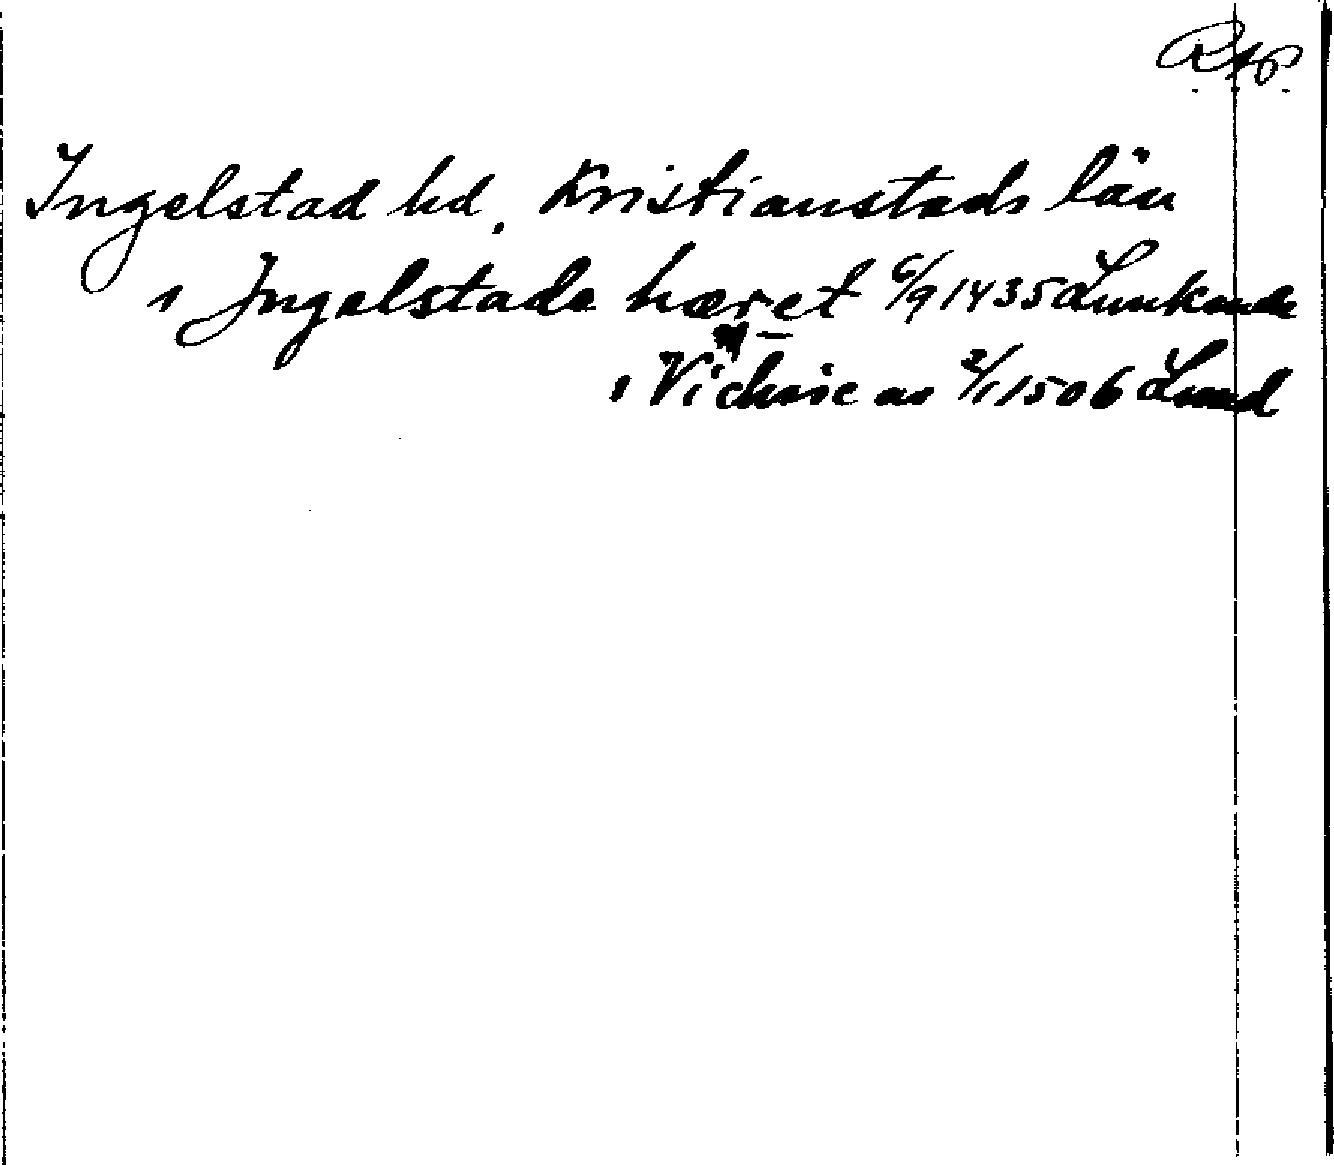 RAP
Ingelstad hd. Kristianstads län
i Ingelstade hæret 6/9 1435 Lunkende
i Vichsie as 2/1 1506 Lund